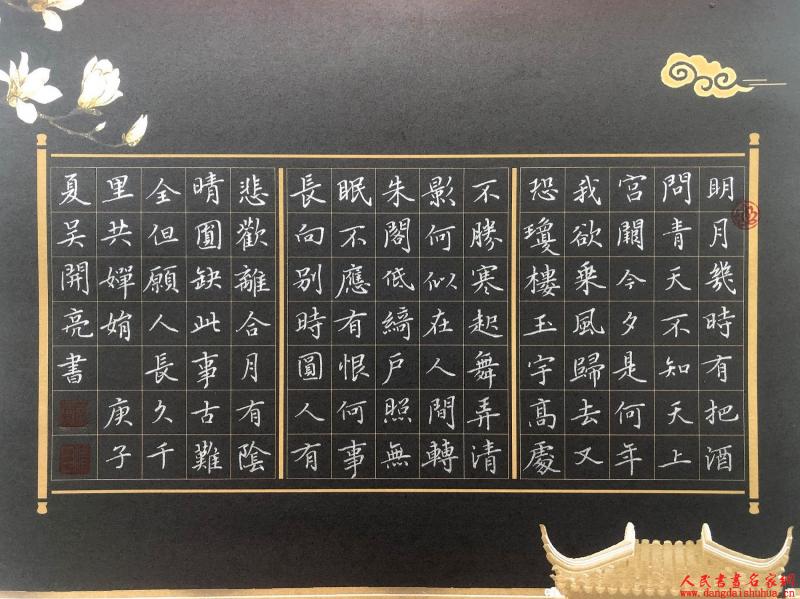 明月幾時有把酒
問青天不知天上
宮闕今夕是何年
我欲乘風歸去又
恐瓊樓玉宇高處
不勝寒起舞弄清
影何似在人間轉
朱閣低綺戶照無
眠不應有恨何事
長向別時圓人有
悲歡離合月有陰
晴圓缺此事古難
全但願人長久千
里共嬋娟 庚子
夏吴開亮書
人民書畫名家網
www.dangdaishuhua.cn